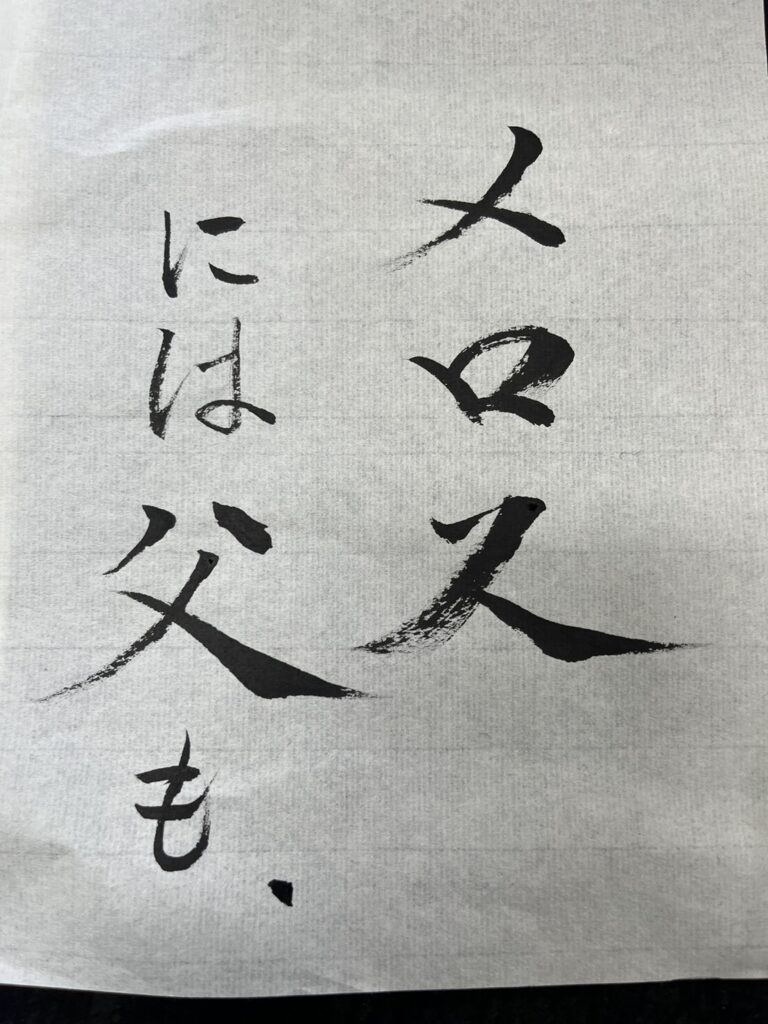 メロス
には父も、